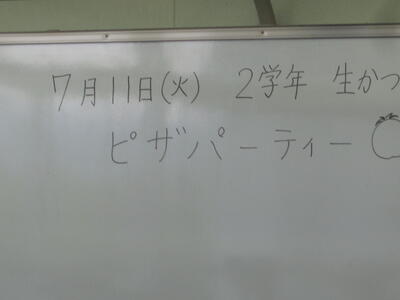 7月11日(火) 2学年 生かつ
ピザパーティー